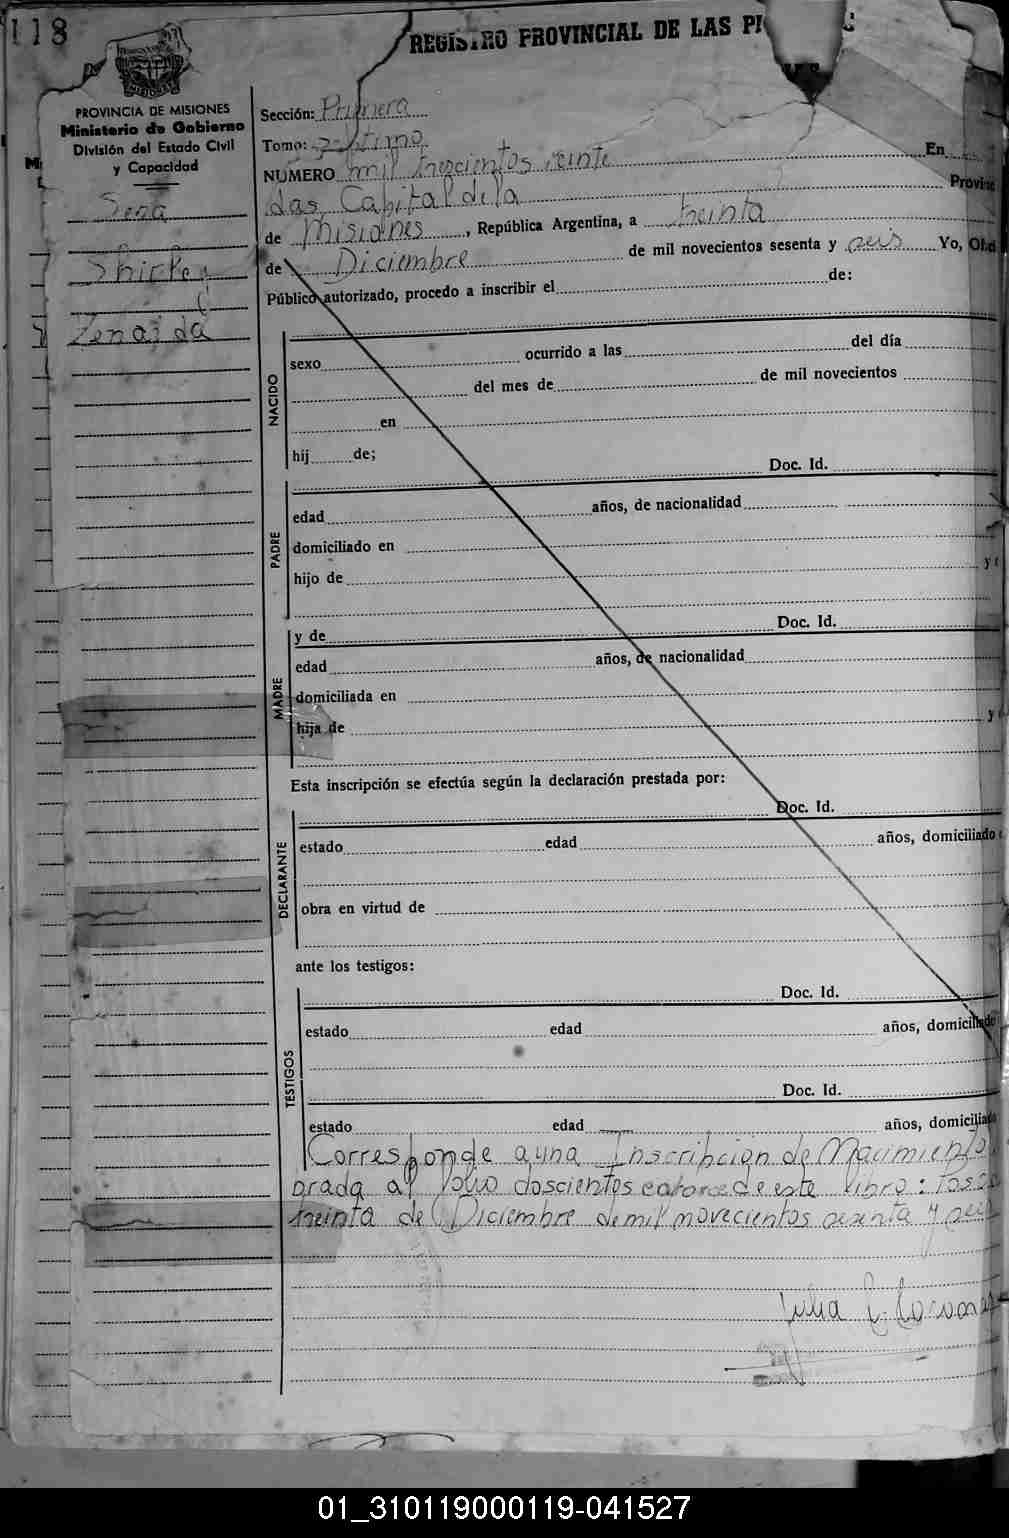 118
REGISTRO PROVINCIAL DE LAS
PROVINCIA DE MISIONES
Ministerio de Gobierno
División del Estado Civil
y Capacidad
MISIONES
Sena
Shirley
Zenaida
Sección: Primera
Tomo: Septimo
NUMERO mil trescientos veinte En
dos, Capital de la Provinc
de Misiones, República Argentina, a treinta
de Diciembre de mil novecientos sesenta y seis Yo,
Público autorizado, procedo a inscribir el de:
NACIDO
sexo ocurrido a las del día
del mes de de mil novecientos
en
hij de;
Doc. Id.
PADRE
edad años, de nacionalidad
domiciliado en
hijo de y
Doc. Id.
MADRE
y de
edad años, de nacionalidad
domiciliada en
hija de y
Esta inscripción se efectúa según la declaración prestada por:
Doc. Id.
DECLARANTE
estado edad años, domiciliado
obra en virtud de
ante los testigos:
Doc. Id.
TESTIGOS
estado edad años, domiciliado
Doc. Id.
estado edad años, domiciliado
Corresponde a una Inscripción de Nacimiento
brada al folio doscientos catorce de este libro:
treinta de Diciembre de mil novecientos sesenta y seis
Julia
01_310119000119-041527